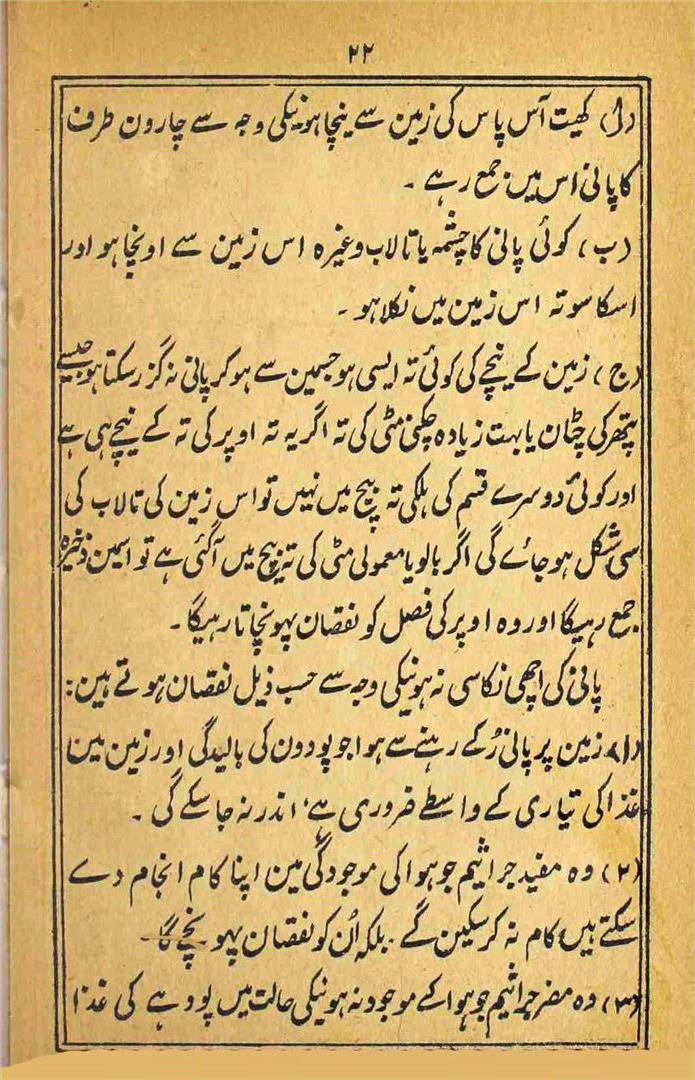 ۲۲
(ا) کھیت آس پاس کی زمین سے نیچا ہونیکی وجہ سے چارون طرف
کا پانی اس میں جمع رہے ۔
(ب) کوئی پانی کا چشمہ یا تالاب وغیرہ اس زمین سے اونچا ہو اور
اسکا سوتہ اس زمین میں نکلا ہو ۔
(ج) زمین کے نیچے کی کوئی تہ ایسی ہو جسمین سے ہو کر پانی نہ گزر سکتا ہو جیسے
پتھر کی چٹان یا بہت زیادہ چکنی مٹی کی تہ اگر یہ تہ اوپر کی تہ کے نیچے ہی ہے
اور کوئی دوسرے قسم کی ہلکی تہ بیچ میں نہیں تو اس زمین کی تالاب کی
سی شکل ہو جائے گی اگر بالو یا معمولی مٹی کی تہ بیچ میں آگئی ہے تو اسمین ذخیرہ
جمع رہیگا اور وہ اوپر کی فصل کو نقصان پہونچاتا رہیگا ۔
پانی کی اچھی نکاسی نہ ہونیکی وجہ سے حسب ذیل نقصان ہوتے ہین :
(۱) زمین پر پانی رُکے رہنے سے ہوا جو پودون کی بالیدگی اور زمین مین
غذا کی تیاری کے واسطے ضروری ہے، اندر نہ جا سکے گی ۔
(۲) وہ مفید جراثیم جو ہوا کی موجودگی مین اپنا کام انجام دے
سکتے ہیں کام نہ کرسکین گے ۔ بلکہ اُن کو نقصان پہونچے گا ۔
(۳) وہ مضر جراثیم جو ہوا کے موجود نہ ہونیکی حالت میں پودہے کی غذا